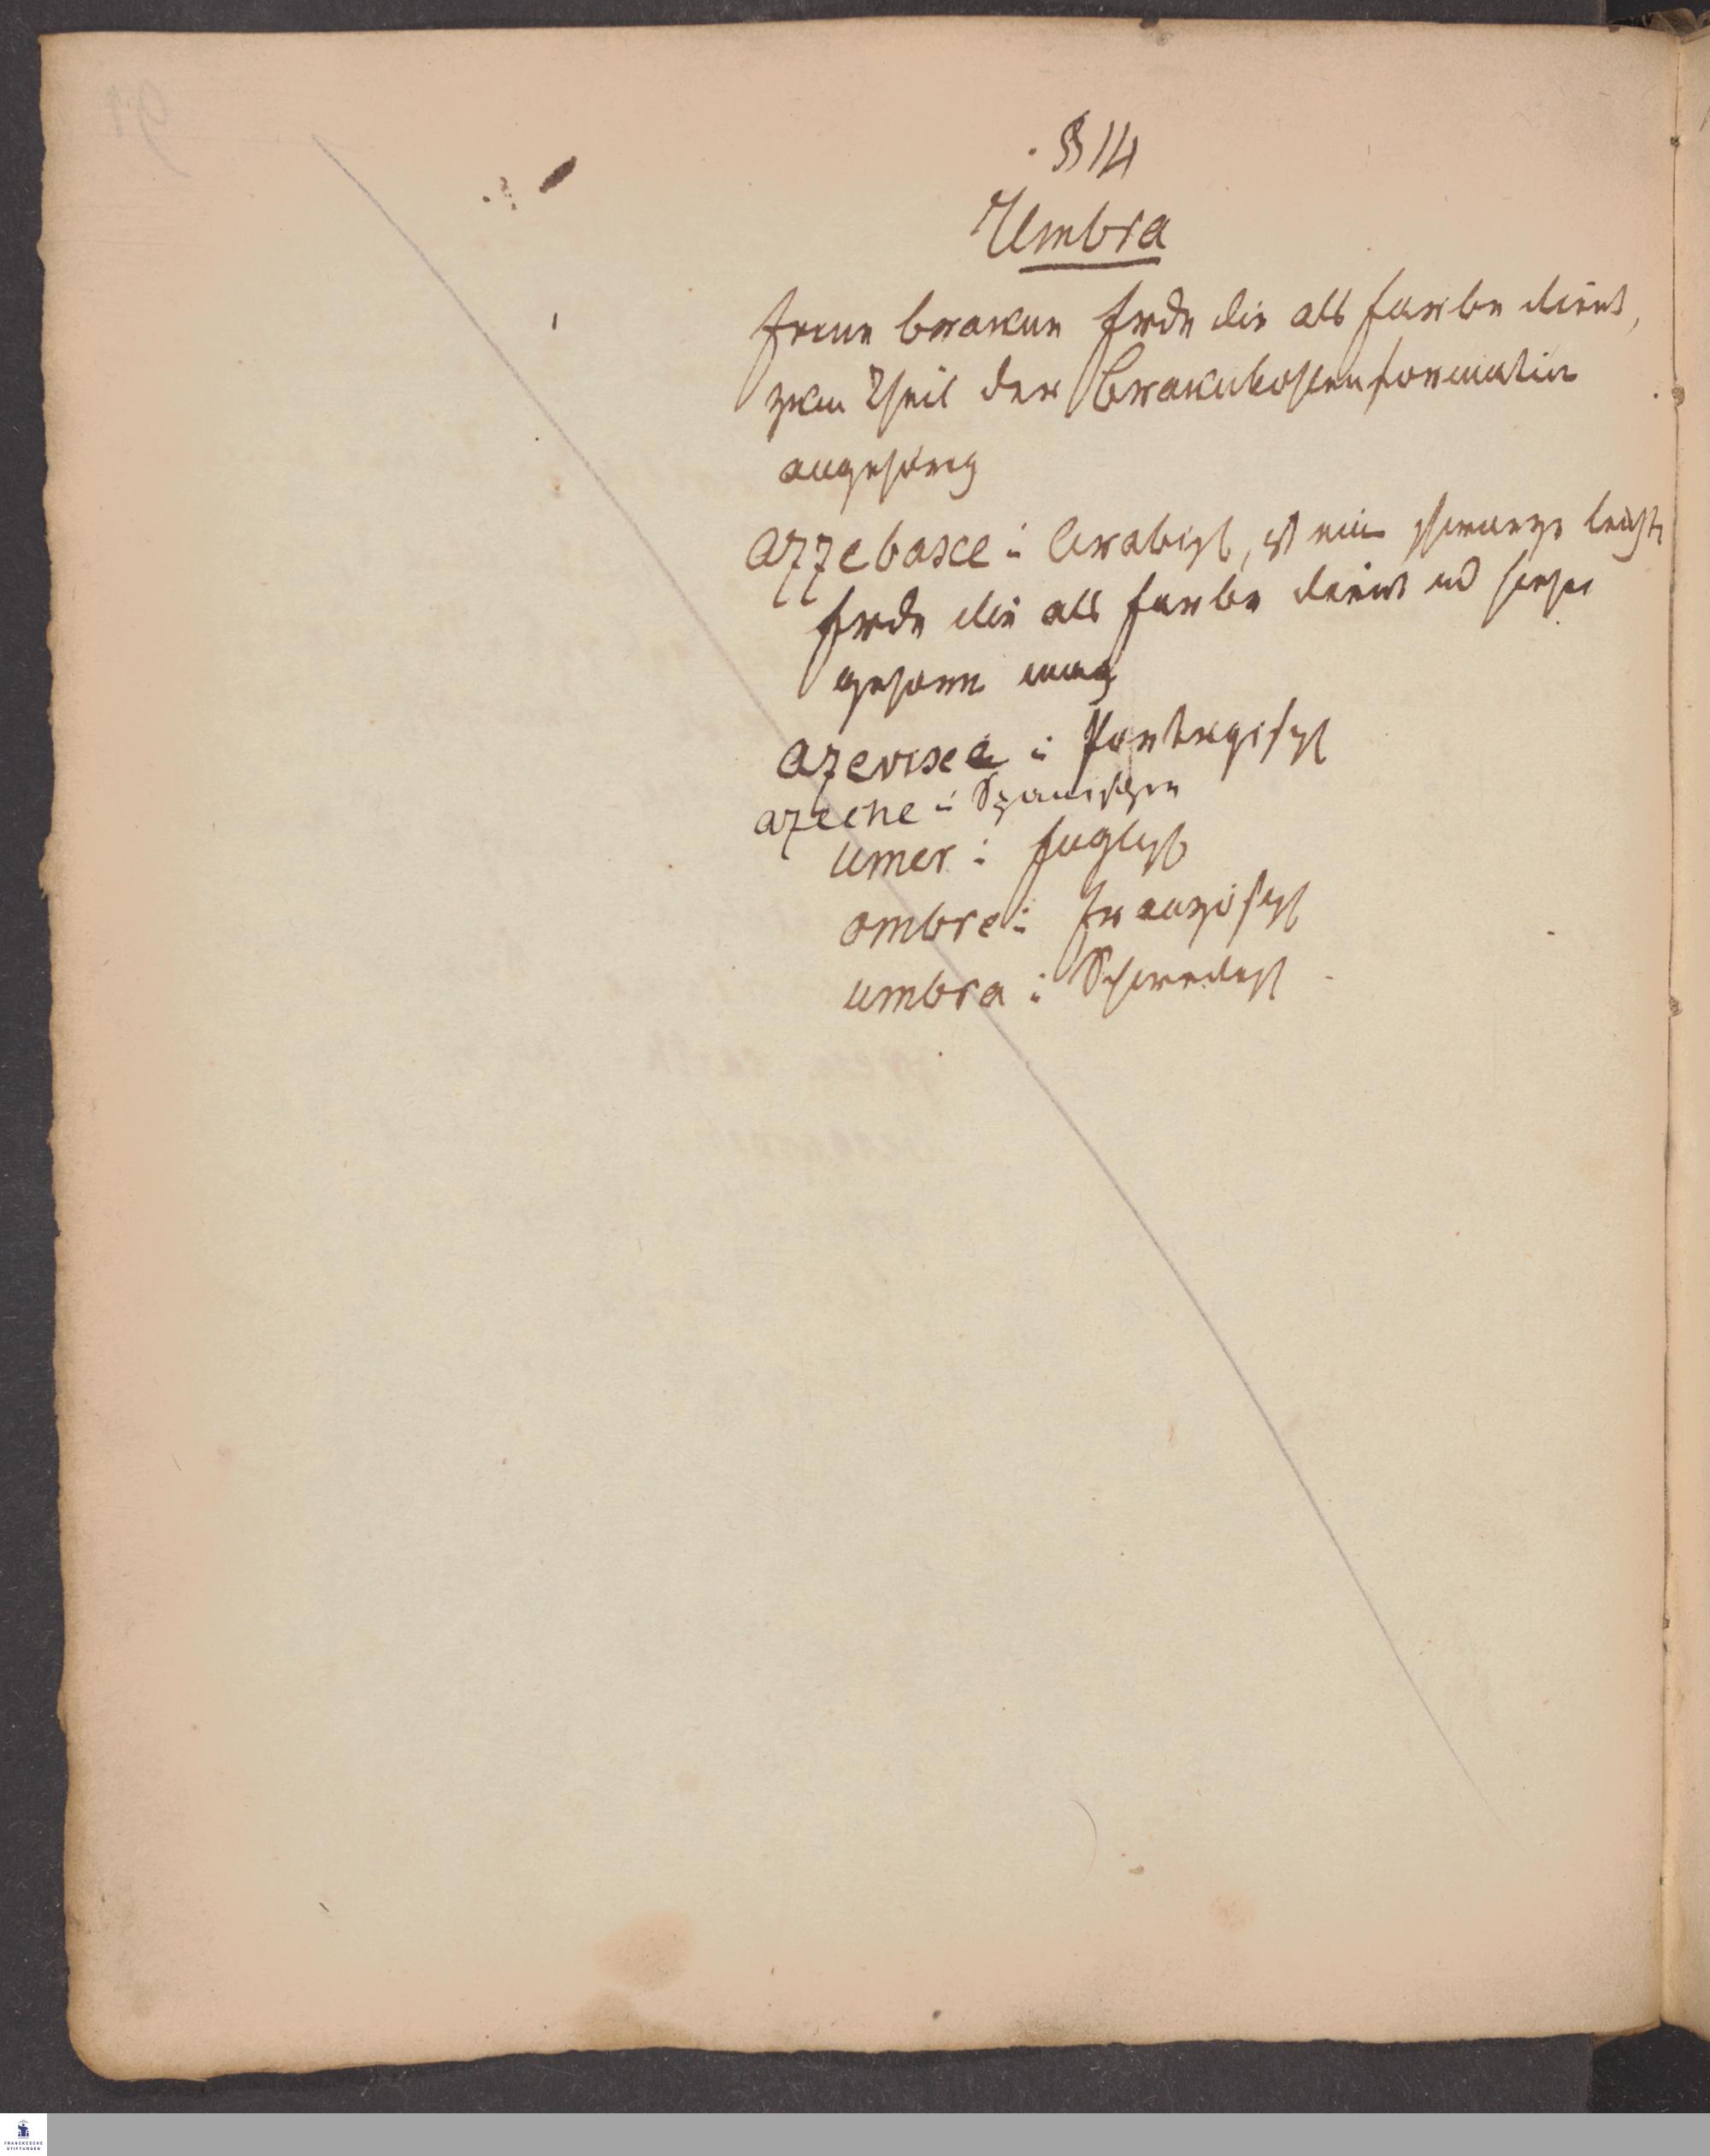 § 14
Umbra
braune Erde die als Farbe dient,
zum Theil der Braunkohlenformation
angehörig
azzebaxe i Arabisch, ist eine schwarze leichte
Erde die als Farbe dient und hieher
gehören mag
azevixe i Portugisisch
azeche i Spanischen
umer i Englisch
ombre i Französisch
umbra i Schwedisch
91
FRANCKESCHE
STIFTUNGEN